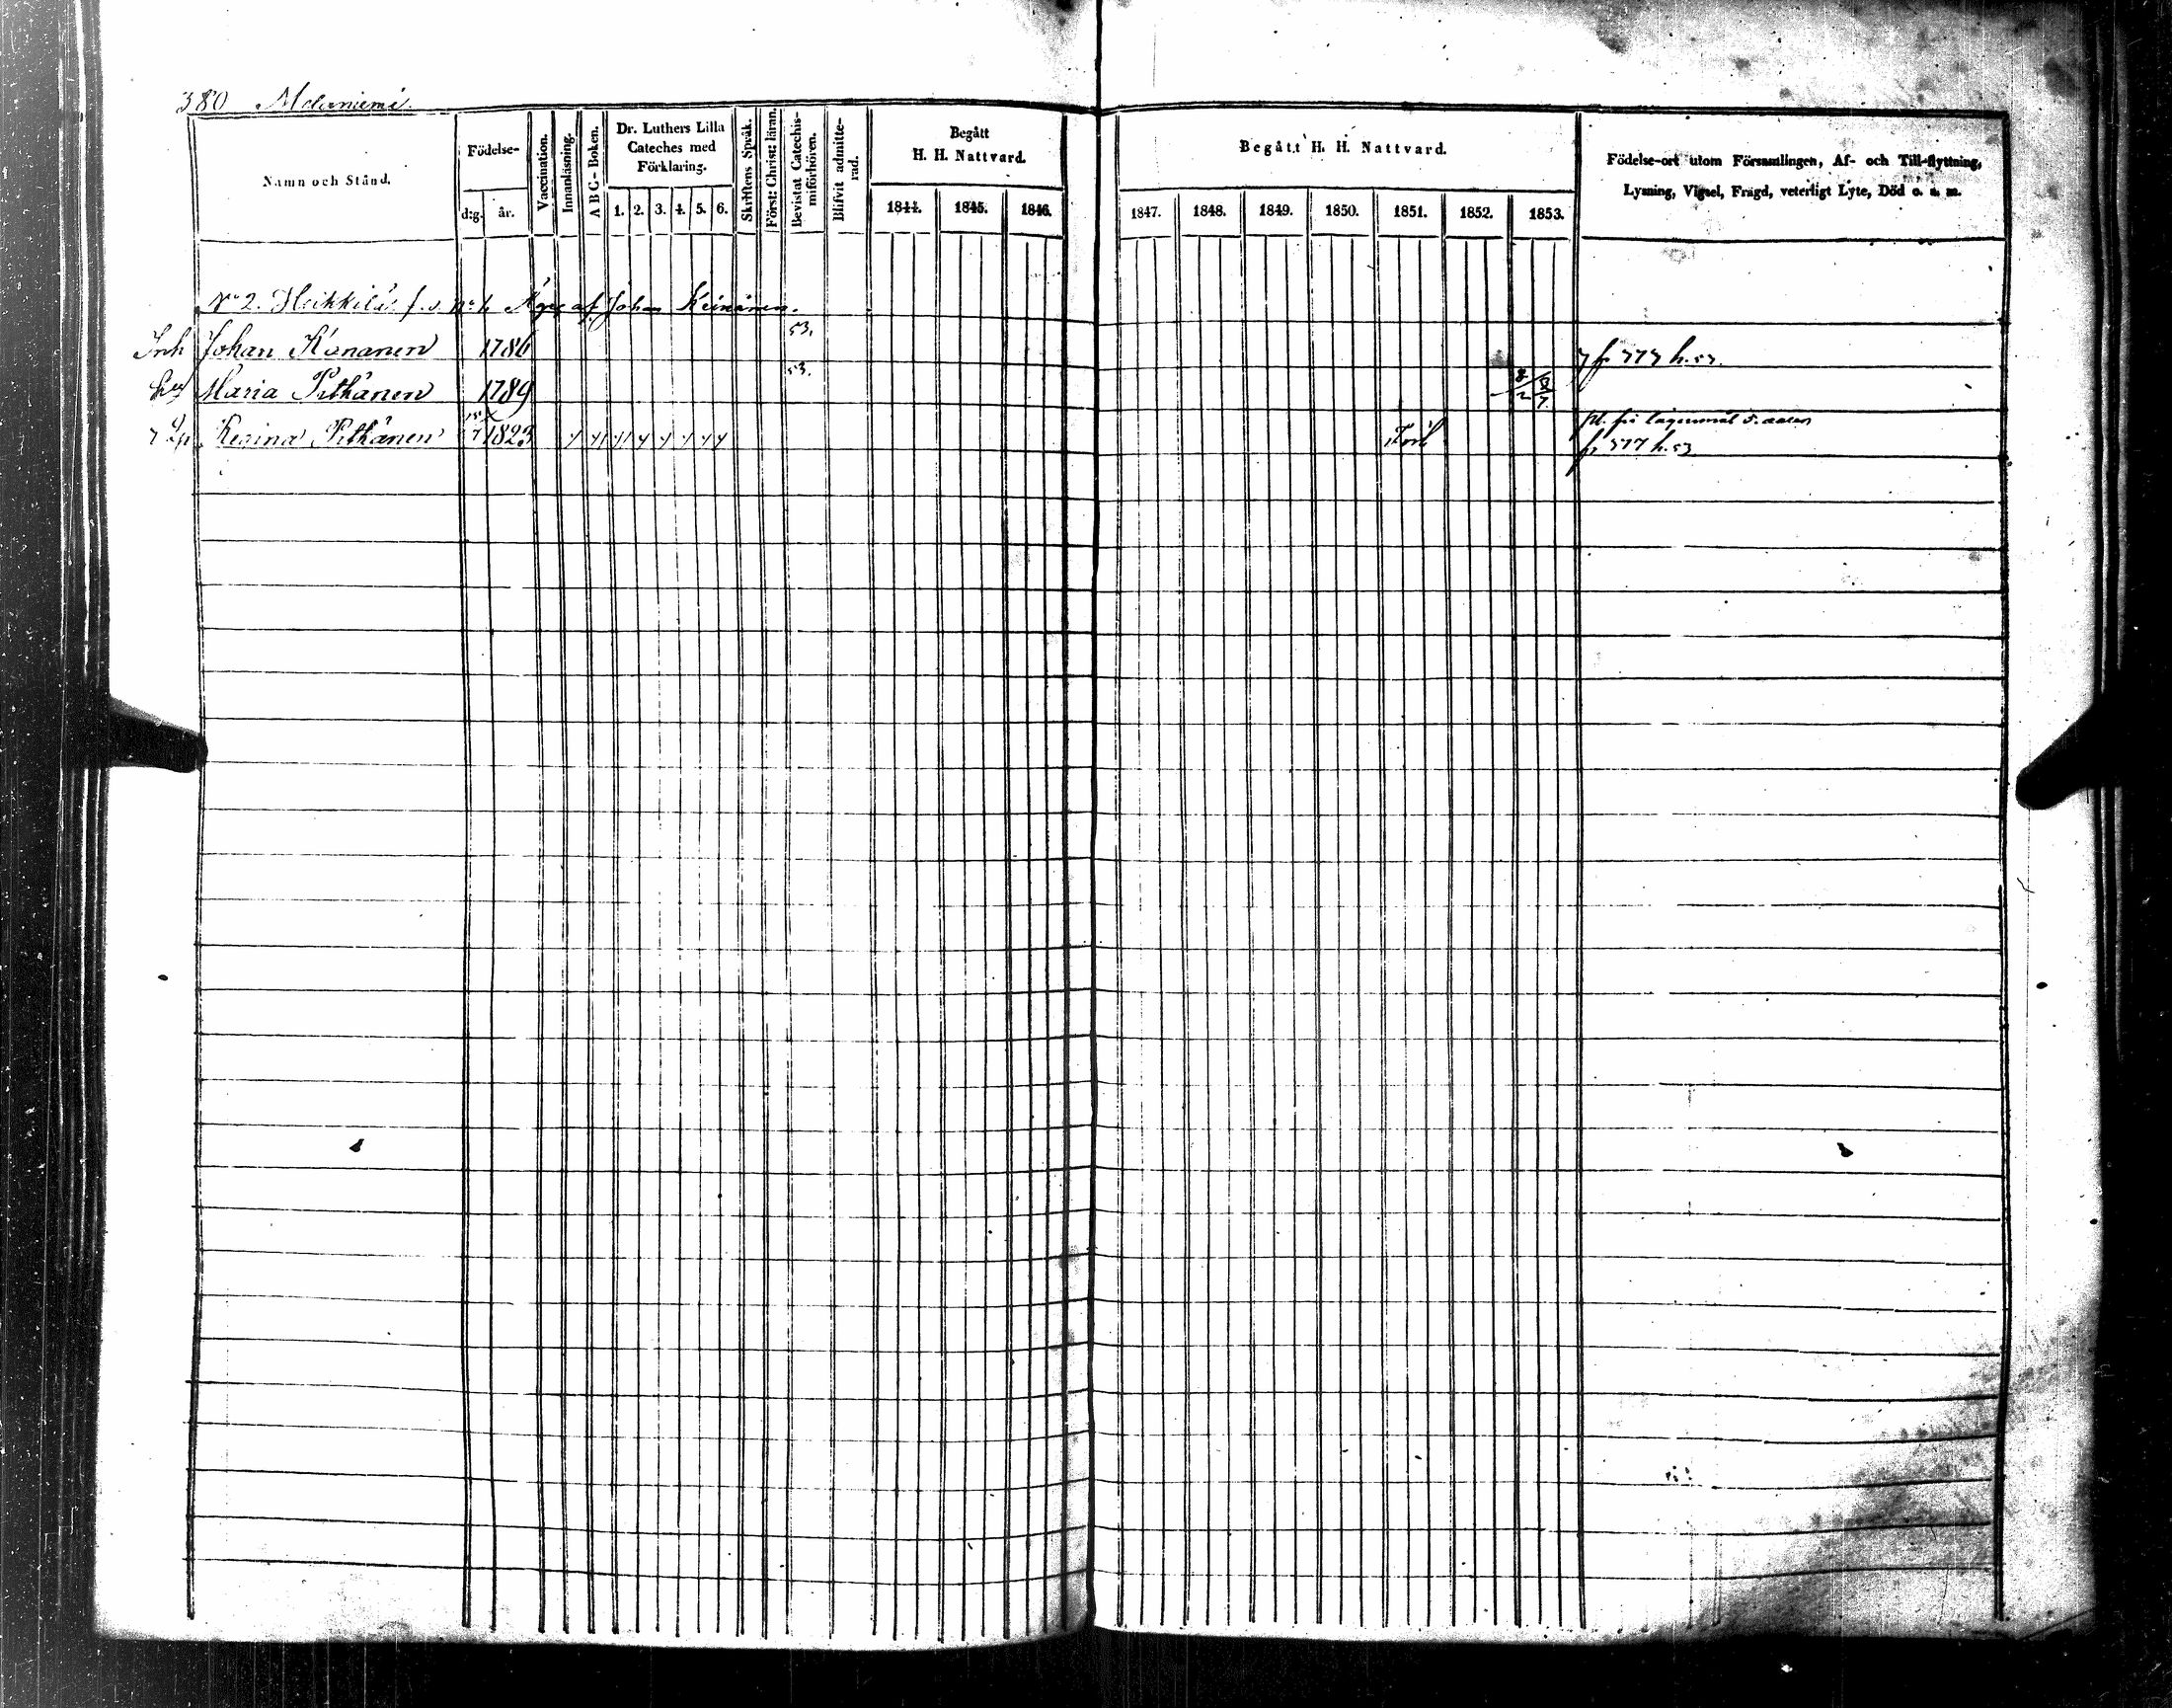 380 Melaniemi.
Namn och Stånd.
Födelse-
d:g. år.
Vaccination.
Innanläsning.
A B C - Boken.
Dr. Luthers Lilla
Cateches med
Förklaring.
1. 2. 3. 4. 5. 6.
Skriftens Språk.
Först: Christ: läran.
Bevistat Catechis-
miförhören.
Blifvit admitte-
rad.
Begått
H. H. Nattvard.
1844. 1845. 1846.
Begått H. H. Nattvard.
1847. 1848. 1849. 1850. 1851. 1852. 1853.
Födelse-ort utom Församlingen, Af- och Till-flyttning,
Lysning, Vigsel, Frägd, veterligt Lyte, Död o. s. m.
No 2. Heikkilä f. d. No 1. Äges af Johan Keinänen.
Inh Johan Kananen 1786 53. fr 377 h. 53.
Maria Pitkänen 1789 53. 8/2
Regina Pitkänen 1823
fr 377 h. 53